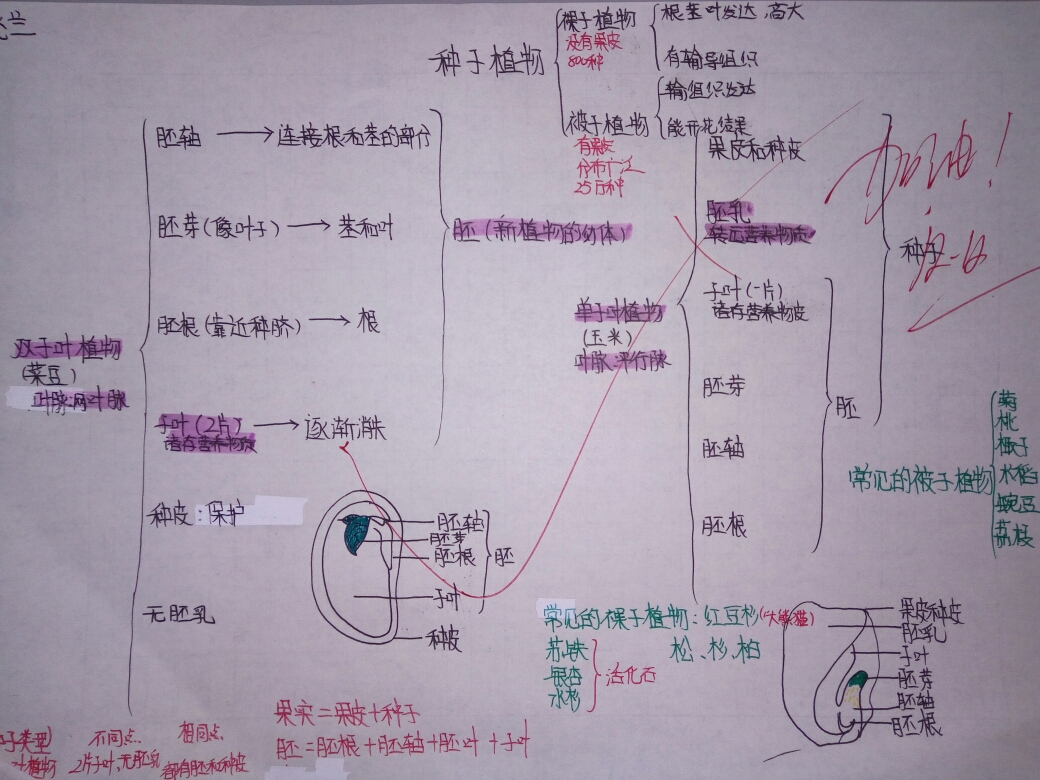 种子植物
裸子植物
没有果皮
800种
根茎叶发达,高大
有输导组织
被子植物
有果皮
分布广泛
25万种
输组织发达
能开花结果
双子叶植物
(菜豆)
叶脉:网叶脉
胚轴 → 连接根和茎的部分
胚芽(像叶子) → 茎和叶
胚根(靠近种脐) → 根
子叶(2片) → 逐渐消失
储存营养物质
种皮:保护
无胚乳
胚(新植物的幼体)
胚轴
胚芽
胚根
胚
子叶
种皮
单子叶植物
(玉米)
叶脉:平行脉
果皮和种皮
胚乳
转运营养物质
子叶(一片)
胚芽
胚轴
胚根
胚
种子
加油!
12-6
常见的被子植物
菊
桃
梅子
水稻
豌豆
荔枝
常见的裸子植物:红豆杉(大熊猫)
松、杉、柏
苏铁
银杏
水杉
活化石
果皮种皮
胚乳
子叶
胚芽
胚轴
胚根
果实=果皮+种子
胚=胚根+胚轴+胚叶+子叶
类型 不同点 相同点
植物 2片子叶,无胚乳 都有胚和种皮